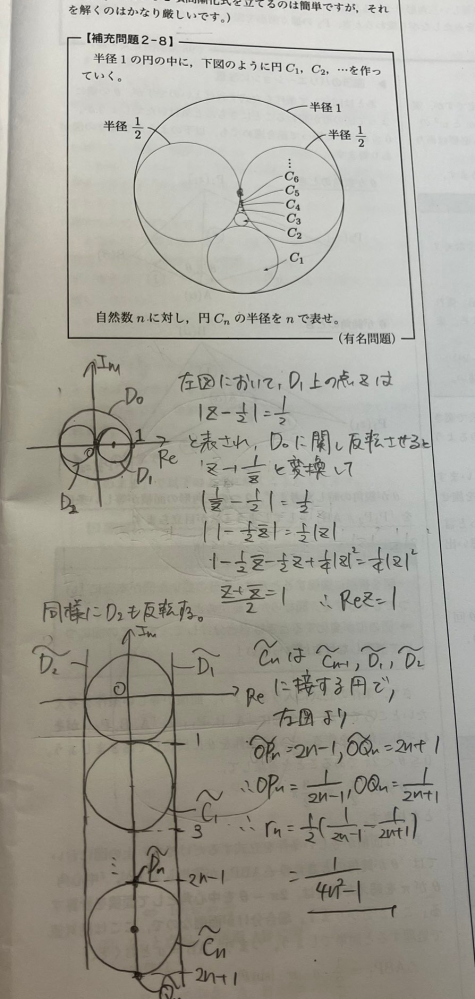 を解くのはかなり厳しいです。)
【補充問題2-8】
半径1の円の中に，下図のように円C₁，C₂，…を作っ
ていく。
半径1
半径1/2
半径1/2
⋮
C₆
C₅
C₄
C₃
C₂
C₁
自然数nに対し，円Cₙの半径をnで表せ。
(有名問題)
Im
D₀
1
Re
O
D₁
D₂
左図において，D₁上の点zは
|z-1/2|=1/2
と表され，D₀に関し反転させると
z→1/z̄と変換して
|1/z̄-1/2|=1/2
|1-1/2z̄|=1/2|z|
1-1/2z̄-1/2z+1/4|z|²=1/4|z|²
(z+z̄)/2=1 ∴Rez=1
同様にD₂も反転する。
Im
D̃₂
D̃₁
O
Re
1
C̃₁
3
⋮
P̃ₙ
2n-1
C̃ₙ
2n+1
Q̃ₙ
C̃ₙは C̃ₙ₋₁, D̃₁, D̃₂
に接する円で，
左図より
OP̃ₙ=2n-1, OQ̃ₙ=2n+1
∴OPₙ=1/(2n-1), OQₙ=1/(2n+1)
∴rₙ=1/2(1/(2n-1)-1/(2n+1))
=1/(4n²-1)